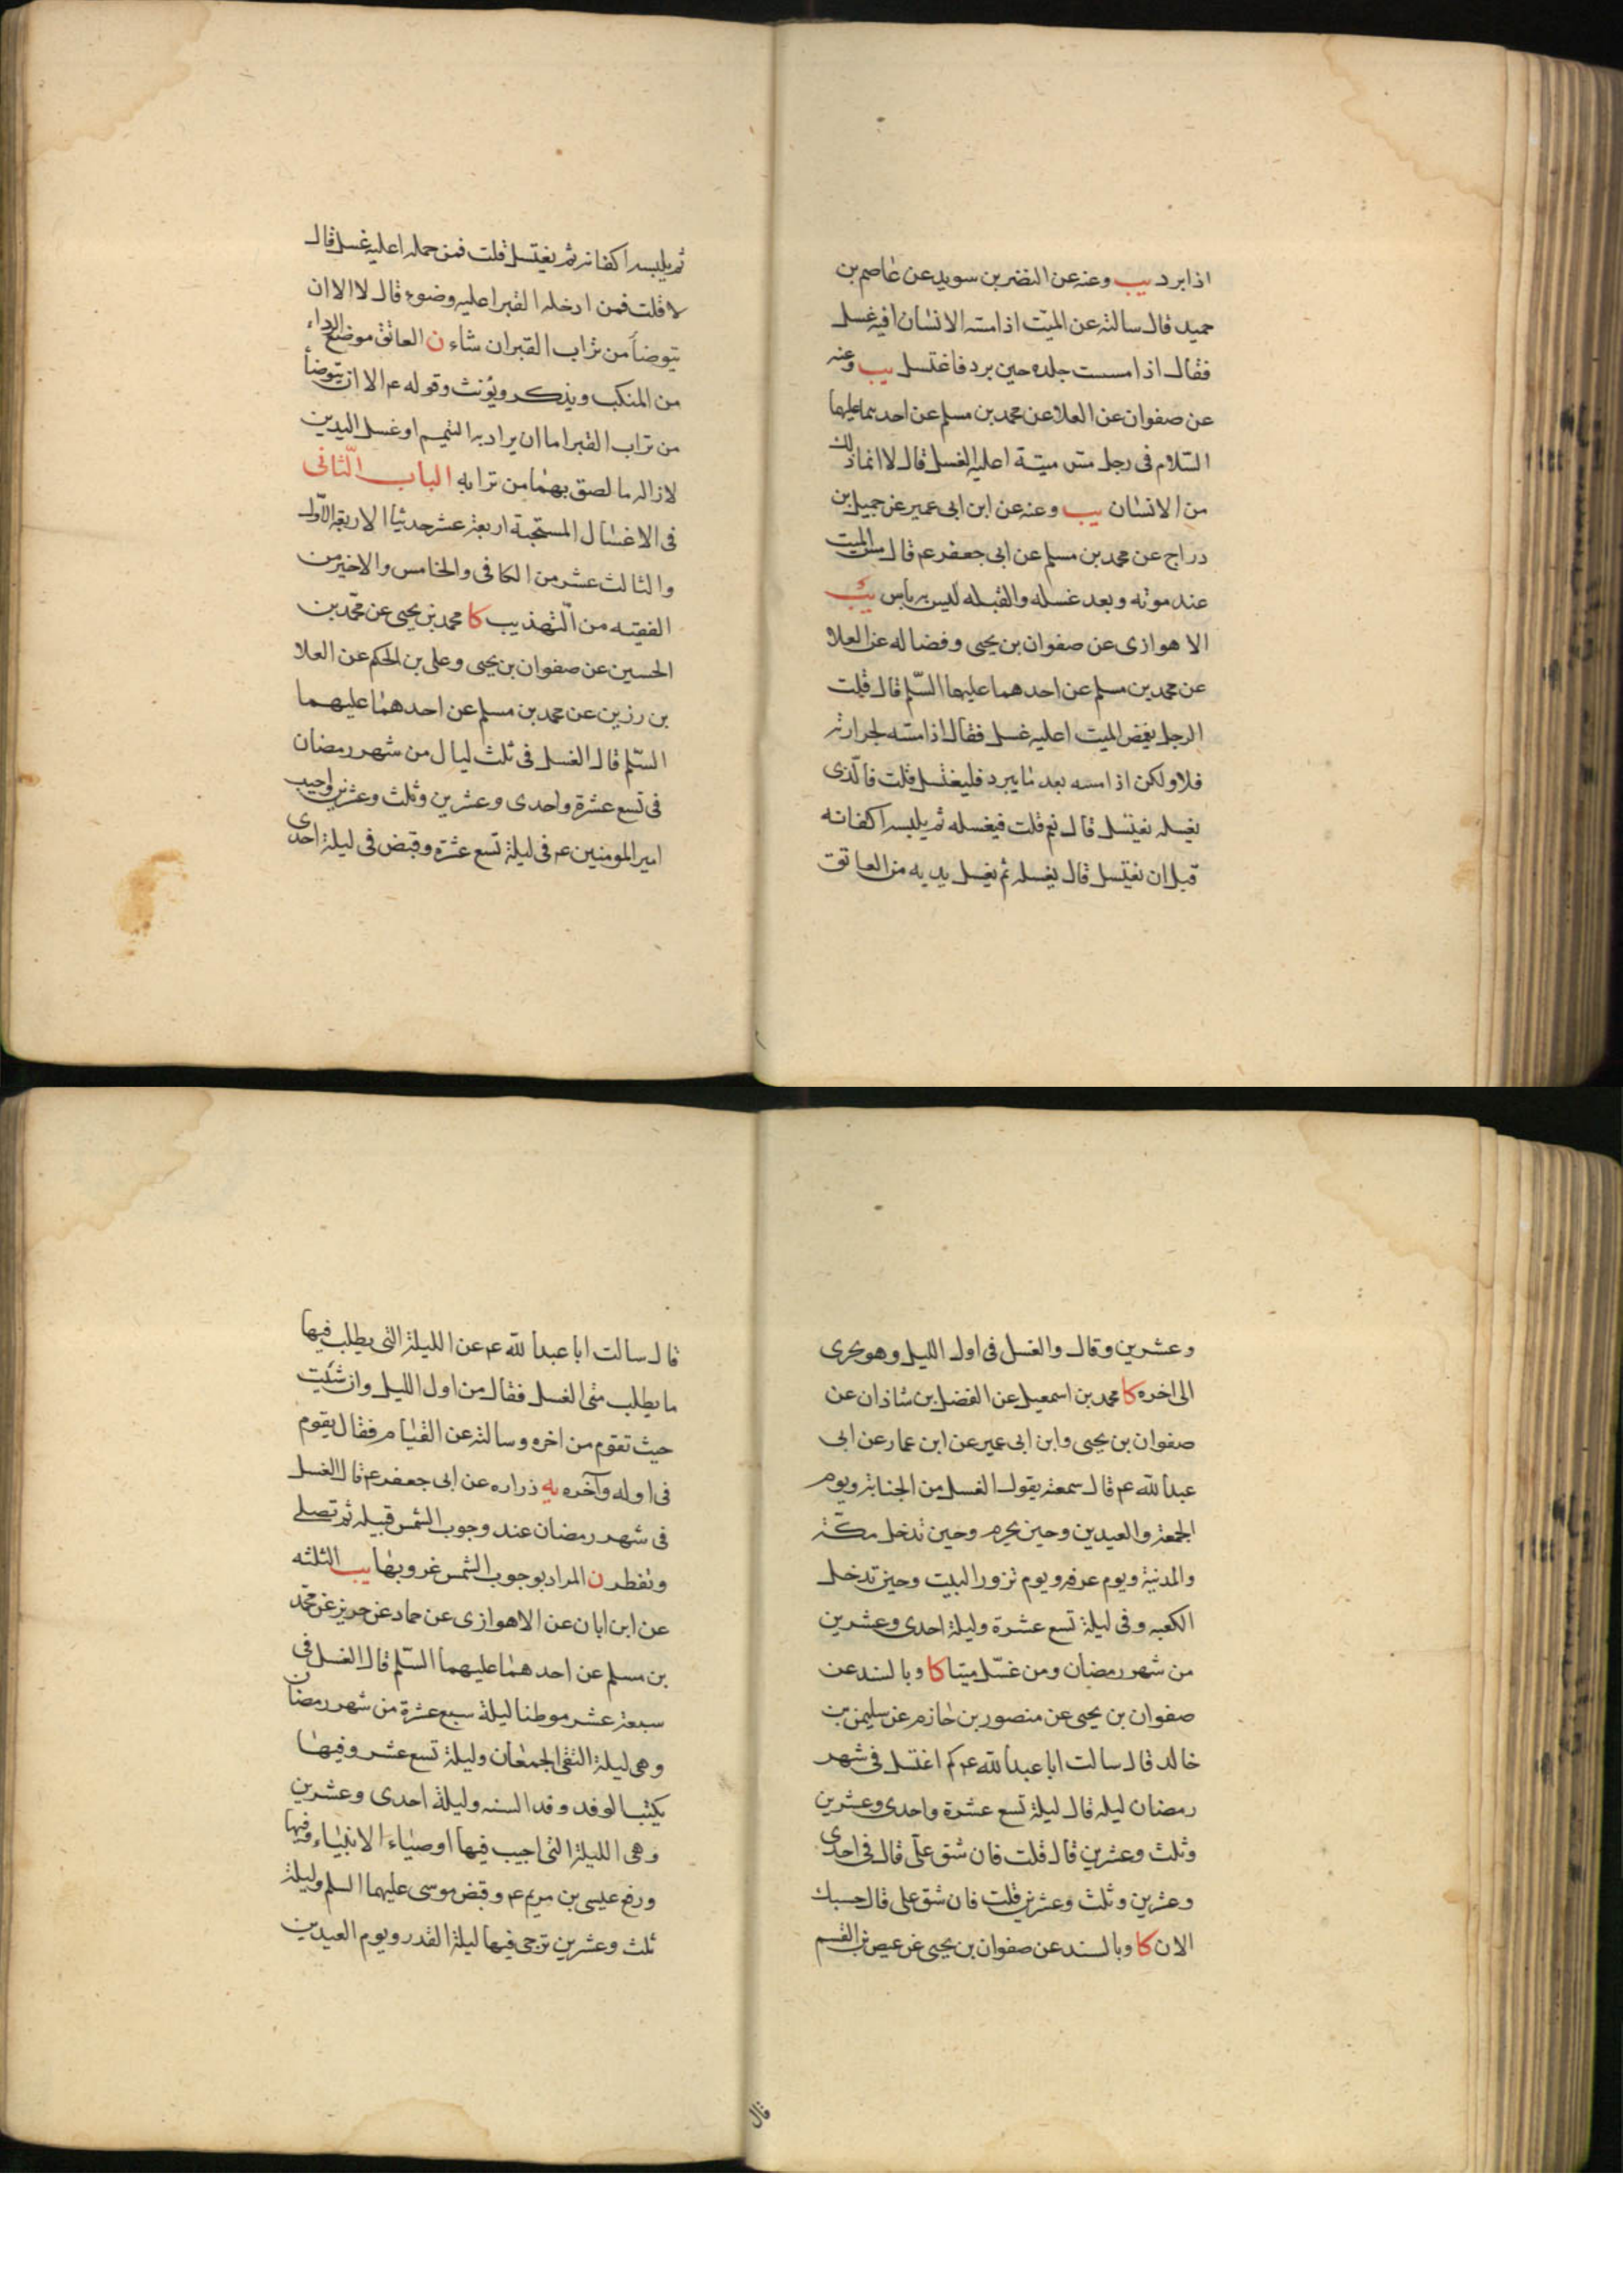 اذا برد يب وعنه عن النضر بن سويد عن عاصم بن
حميد قال سالته عن الميّت اذا مسه الانسان افيه غسل
فقال اذا مسست جلده حين برد فاغتسل يب وعنه
عن صفوان عن العلا عن محمد بن مسلم عن احدهما عليهما
السّلام فى رجل مس ميتة اعليه الغسل قال لا انما ذلك
من الانسان يب وعنه عن ابن ابى عمير عن جميل بن
دراج عن محمد بن مسلم عن ابى جعفر ع قال مس الميت
عند موته وبعد غسله والقبله ليس به باس يب
الاهوازى عن صفوان بن يحيى وفضاله عن العلا
عن محمد بن مسلم عن احدهما عليهما السّلم قال قلت
الرجل يغمض الميت اعليه غسل فقال اذا مسّه بحرارته
فلا ولكن اذا مسه بعد ما يبرد فليغتسل قلت فالّذى
يغسله يغتسل قال نعم قلت فيغسله ثم يلبسه اكفانه
قبل ان يغتسل قال يغسله ثم يغسل يديه من العاتق
ثم يلبسه اكفانه ثم يغتسل قلت فمن حمله اعليه غسل قال
لا قلت فمن ادخله القبر اعليه وضوء قال لا الا ان
يتوضأ من تراب القبر ان شاء ن العاتق موضع الرداء
من المنكب ويذكر ويؤنث وقوله ع الا ان يتوضأ
من تراب القبر اما ان يراد به التيمم او غسل اليدين
لازاله ما لصق بهما من ترابه الباب الثّانى
فى الاغسال المستحبة اربعة عشر حديثا الاربعة الاول
والثالث عشر من الكافى والخامس والاخير من
الفقيه من التّهذيب كا محمد بن يحيى عن محمّد بن
الحسين عن صفوان بن يحيى وعلى بن الحكم عن العلا
بن رزين عن محمد بن مسلم عن احدهما عليهما
السّلم قال الغسل فى ثلث ليال من شهر رمضان
فى تسع عشرة واحدى وعشرين وثلث وعشرين واصيب
امير المومنين ع فى ليلة تسع عشرة وقبض فى ليلة احدى
وعشرين وقال والغسل فى اول الليل وهو يجرى
الى اخره كا محمد بن اسمعيل عن الفضل بن شاذان عن
صفوان بن يحيى وابن ابى عمير عن ابن عمار عن ابى
عبد الله ع قال سمعته يقول الغسل من الجنابة ويوم
الجمعة والعيدين وحين يحرم وحين تدخل مكّة
والمدنية ويوم عرفه ويوم تزور البيت وحين تدخل
الكعبه وفى ليلة تسع عشرة وليلة احدى وعشرين
من شهر رمضان ومن غسّل ميتا كا وبالسند عن
صفوان بن يحيى عن منصور بن حازم عن سليمن بن
خالد قال سالت ابا عبد الله ع كم اغتسل فى شهر
رمضان ليله قال ليلة تسع عشرة واحدى وعشرين
وثلث وعشرين قال قلت فان شق علىّ قال فى احدى
وعشرين وثلث وعشرين قلت فان شق على قال حسبك
الان كا وبالسند عن صفوان بن يحيى عن عيص بن القسم
قال
قال سالت ابا عبد الله ع عن الليلة التى يطلب فيها
ما يطلب متى الغسل فقال من اول الليل وان شئت
حيث تقوم من اخره وسالته عن القيام فقال يقوم
فى اوله وآخره يه زراره عن ابى جعفر ع قال الغسل
فى شهر رمضان عند وجوب الشمس قبيله ثم تصلى
وتفطر ن المراد بوجوب الشمس غروبها يب الثلثه
عن ابن ابان عن الاهوازى عن حماد عن حريز عن محمّد
بن مسلم عن احدهما عليهما السّلم قال الغسل فى
سبعة عشر موطنا ليلة سبع عشرة من شهر رمضان
وهى ليلة التقى الجمعان وليلة تسع عشر وفيها
يكتب الوفد وفد السنه وليلة احدى وعشرين
وهى الليلة التى اصيب فيها اوصياء الانبياء وفيها
ورفع عيسى بن مريم ع وقبض موسى عليهما السلم وليلة
ثلث وعشرين ترجى فيها ليلة القدر ويوم العيدين